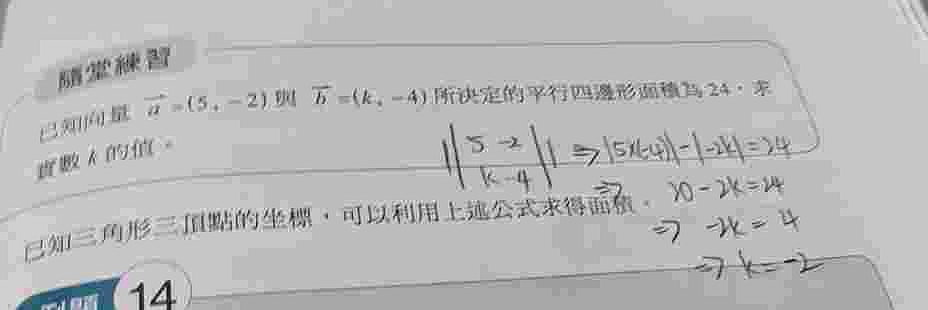 隨堂練習
已知向量 a =(5，-2)與 b =(k，-4)所決定的平行四邊形面積為24，求
實數 k 的值。
||5 -2
k -4|| ⇒ |5×(-4)|-|-2k|=24
⇒ 20-2k=24
已知三角形三頂點的坐標，可以利用上述公式求得面積。
⇒ -2k=4
⇒ k=-2
例題 14